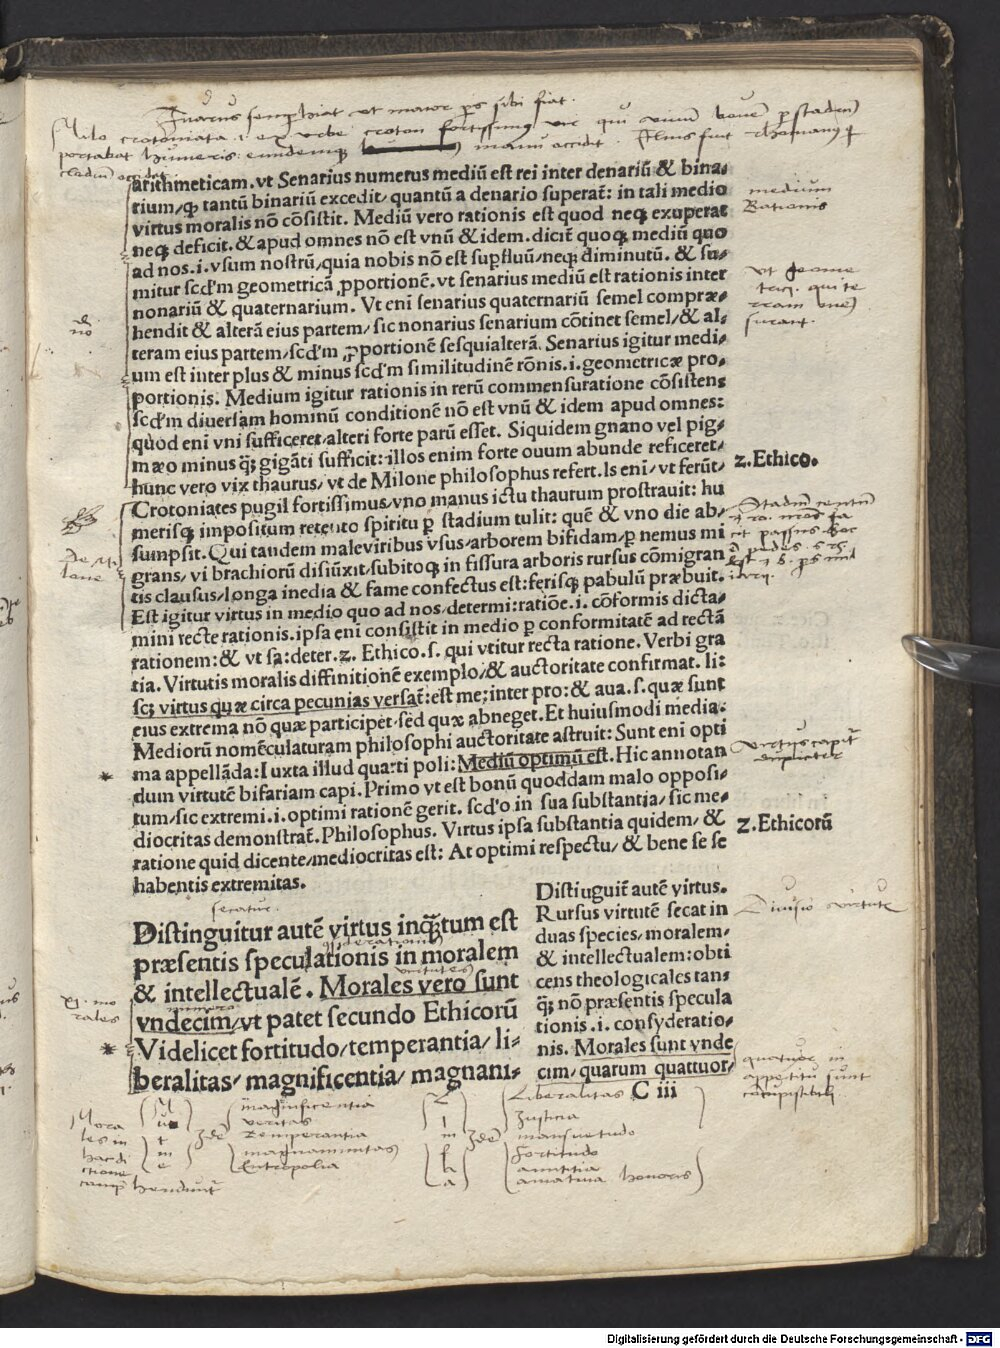 Milo crotoniata .i. ex urbe croton fortissimus vir qui unum bouem per stadium
portabat humeris eundemque manu occidit.
arithmeticam. vt Senarius numerus mediū est rei inter denariū & bina⸗
rium/qꝫ tantū binariū excedit/quantū a denario superat̄: in tali medio
virtus moralis nō cōsistit. Mediū vero rationis est quod neqꝫ exuperat
neqꝫ deficit. & apud omnes nō est vnū & idem. dicit̄ quoqꝫ mediū quo
ad nos .i. vsum nostrū/quia nobis nō est suꝑfluū/neqꝫ diminutū. & su⸗
mitur scd'm geometricā ꝓportionē. vt senarius mediū est rationis inter
nonariū & quaternarium. Vt eni senarius quaternariū semel compræ⸗
hendit & alterā eius partem/sic nonarius senarium cōtinet semel/& al⸗
teram eius partem/scd'm ꝓportionē sesquialterā. Senarius igitur medi⸗
um est inter plus & minus scd'm similitudinē rōnis .i. geometricæ pro⸗
portionis. Medium igitur rationis in rerū commensuratione cōsistens
scd'm diuersam hominū conditionē nō est vnū & idem apud omnes:
quod eni vni sufficeret/alteri forte parū esset. Siquidem gnano vel pig⸗
mæo minus qꝫ gigāti sufficit: illos enim forte ouum abunde reficeret⸗
hunc vero vix thaurus/vt de Milone philosophus refert. Is eni/vt ferūt⸗
Crotoniates pugil fortissimus/vno manus ictu thaurum prostrauit: hu
merisqꝫ impositum retento spiritu ꝑ stadium tulit: quē & vno die ab⸗
sumpsit. Qui tandem maleviribus vsus/arborem bifidam/ꝑ nemus mi
grans/vi brachiorū disiūxit/subitoqꝫ in fissura arboris rursus cōmigran
tis clausus/longa inedia & fame confectus est: ferisqꝫ pabulū præbuit.
Est igitur virtus in medio quo ad nos/determi: ratiōe .i. cōformis dicta⸗
mini recte rationis. ipsa eni consistit in medio ꝑ conformitatē ad rectā
rationem: & vt sa: deter. 2. Ethico. s. qui vtitur recta ratione. Verbi gra
tia. Virtutis moralis diffinitionē exemplo/& auctoritate confirmat. li:
scꝫ virtus quæ circa pecunias versat̄: est me; inter pro: & aua. s. quæ sunt
eius extrema nō quæ participet/sed quæ abneget. Et huiusmodi media⸗
Mediorū nomēculaturam philosophi auctoritate astruit: Sunt eni opti
ma appellāda: Iuxta illud quarti poli: Mediū optimū est. Hic annotan
dum virtutē bifariam capi. Primo vt est bonū quoddam malo opposi⸗
tum/sic extremi .i. optimi rationē gerit. scd'o in sua substantia/sic me⸗
diocritas demonstrat̄. Philosophus. Virtus ipsa substantia quidem/&
ratione quid dicente/mediocritas est: At optimi respectu/& bene se se
habentis extremitas.
medium
Rationis
2. Ethico.
virtus capit̄
dupliciter
2. Ethicorū
Diuisio virtutū
Distinguitur autē virtus inqꝫtum est
præsentis speculationis in moralem
& intellectualē. Morales vero sunt
vndecim/vt patet secundo Ethicorū
Videlicet fortitudo/temperantia/li⸗
beralitas/magnificentia/magnani⸗
Distiuguit̄ autē virtus.
Rursus virtutē secat in
duas species/moralem⸗
& intellectualem: obti
cens theologicales tan⸗
qꝫ nō præsentis specula
tionis .i. consyderatio⸗
nis. Morales sunt vnde
cim/quarum quattuor⸗
C iii
magnificentia
veritas
Temperantia
magnanimitas
Eutropolia
Liberalitas
Justicia
mansuetudo
Fortitudo
amicitia
amatiua honoris
Digitalisierung gefördert durch die Deutsche Forschungsgemeinschaft - DFG